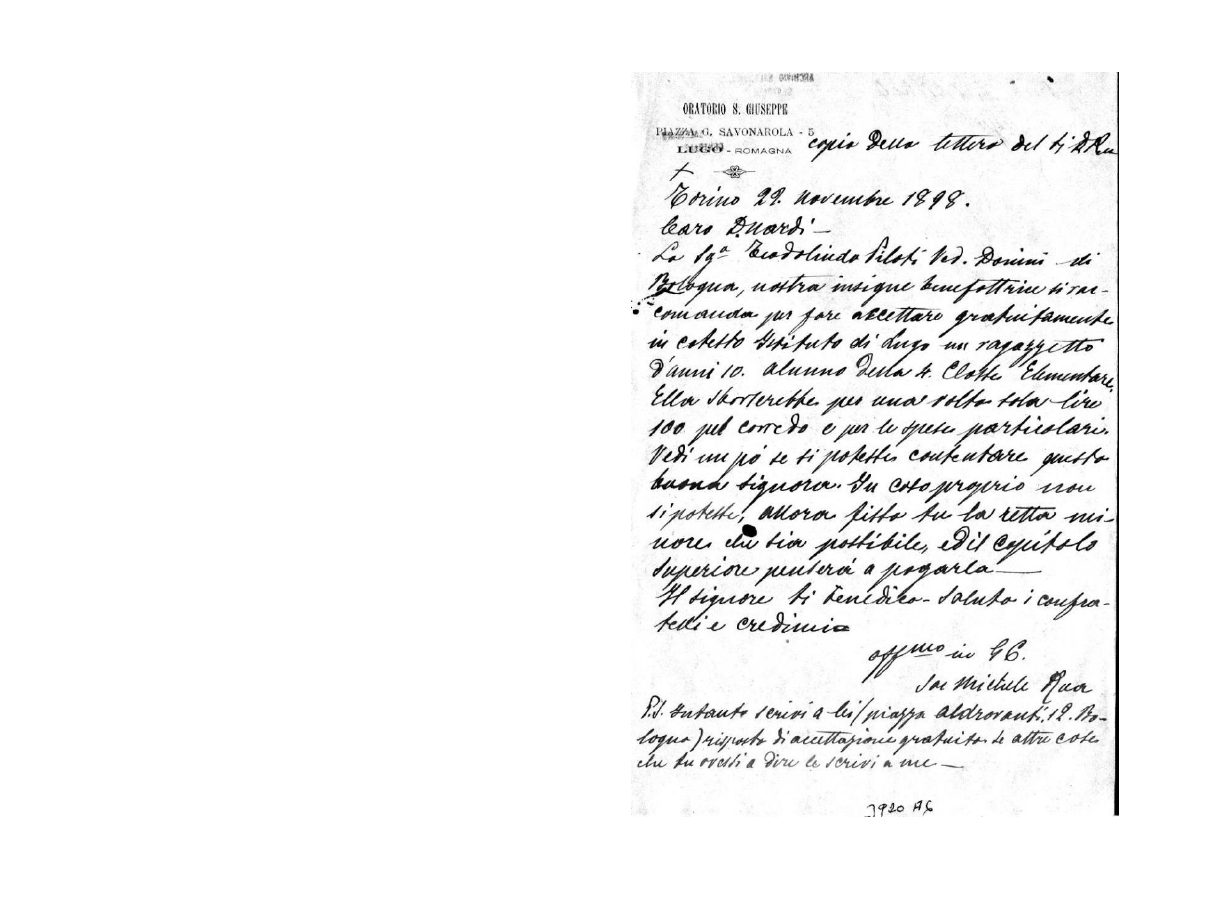 ORATORIO S. GIUSEPPE
PIAZZA G. SAVONAROLA - 5
LUGO - ROMAGNA
copia della lettera del Si D. Rua
Torino 22. novembre 1898.
Caro D. Nardi -
La Sgª Teodolinda Piloti Ved. Donini di
Bologna, nostra insigne benefattrice si rac-
comanda per fare accettare gratuitamente
in cotesto Istituto di Lugo un ragazzetto
d'anni 10. alunno della 4. Classe Elementare.
Ella sborserebbe per una volta sola lire
100 pel corredo e per le spese particolari.
Vedi un pó se si potesse contentare questa
buona signora. In caso proprio non
si potesse, allora fissa tu la retta mi-
nore che sia possibile, ed il capitolo
superiore penserá a pagarla -
Il signore ti benedica - Saluta i confra-
telli e credimi
aff.mo in G C.
Sac Michele Rua
P.S. Intanto scrivi a lei (piazza Aldrovanti. 12. Bo-
logna) risposta di accettazione gratuita se altre cose
che tu avessi a dire le scrivi a me -